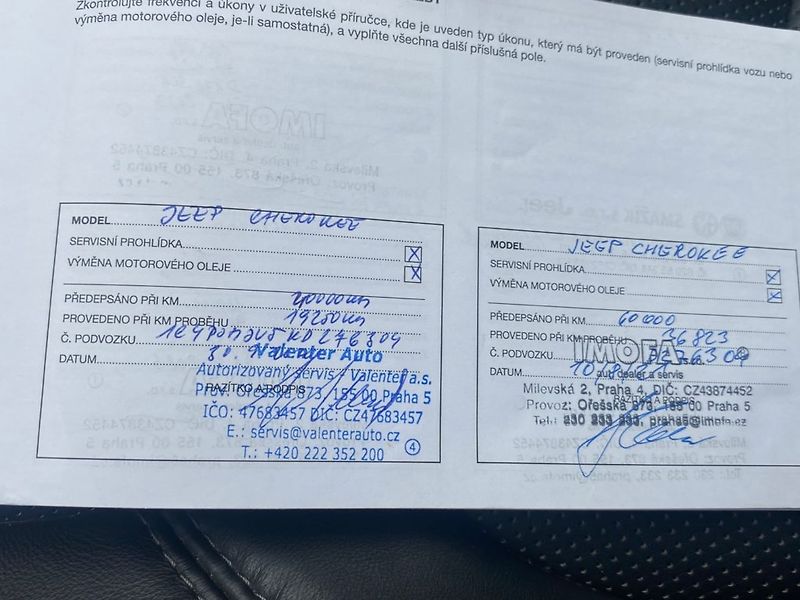 Zkontrolujte frekvenci a úkony v uživatelské příručce, kde je uveden typ úkonu, který má být proveden (servisní prohlídka vozu nebo
výměna motorového oleje, je-li samostatná), a vyplňte všechna další příslušná pole.
MODEL JEEP CHEROKEE
SERVISNÍ PROHLÍDKA X
VÝMĚNA MOTOROVÉHO OLEJE X
PŘEDEPSÁNO PŘI KM
PROVEDENO PŘI KM PROBĚHU 19250km
Č. PODVOZKU
DATUM 30.
Valenter Auto
Autorizovaný servis / Valenter a.s.
RAZÍTKO A PODPIS
Prov. Ořešská 873, 155 00 Praha 5
IČO: 47683457 DIČ: CZ47683457
E.: servis@valenterauto.cz
T.: +420 222 352 200 4
MODEL JEEP CHEROKEE
SERVISNÍ PROHLÍDKA X
VÝMĚNA MOTOROVÉHO OLEJE X
PŘEDEPSÁNO PŘI KM 60 000
PROVEDENO PŘI KM PROBĚHU 36 823
Č. PODVOZKU
IMOFA
DATUM 10.
auto dealer a servis
Milevská 2, Praha 4, DIČ: CZ43874452
RAZÍTKO A PODPIS
Provoz: Ořešská 873, 155 00 Praha 5
Tel.: 230 233 233, praha5@imofa.cz